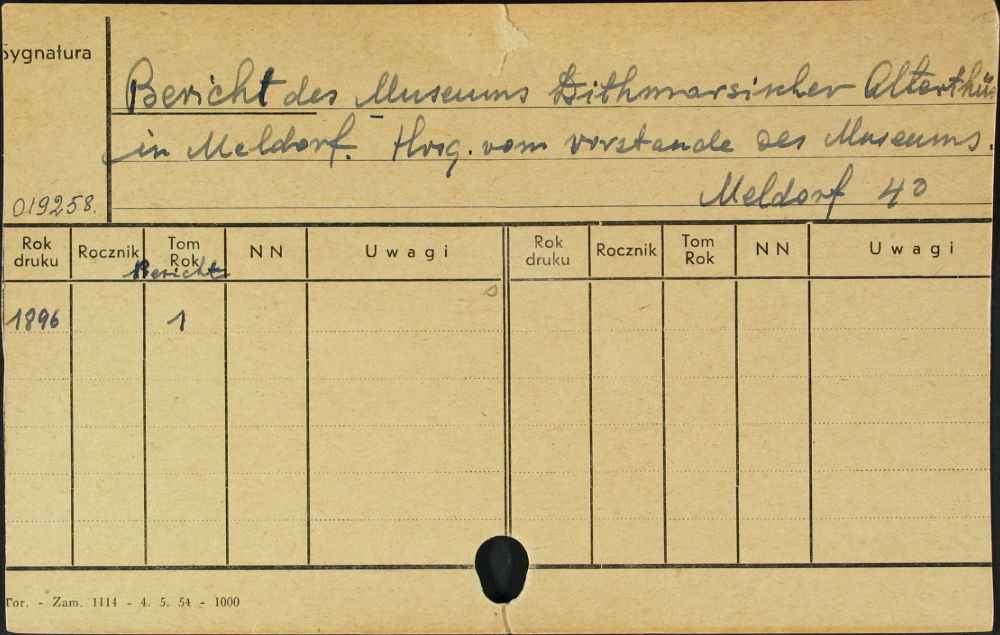 Sygnatura
Bericht des Museums Dithmarsischer Alterthü
in Meldorf. Hrsg. vom Vorstande des Museums.
Meldorf 4°
019258.
Rok druku Rocznik Tom Rok NN Uwagi Rok druku Rocznik Tom Rok NN Uwagi
Bericht
1896 1
Tor. - Zam. 1114 - 4. 5. 54 - 1000